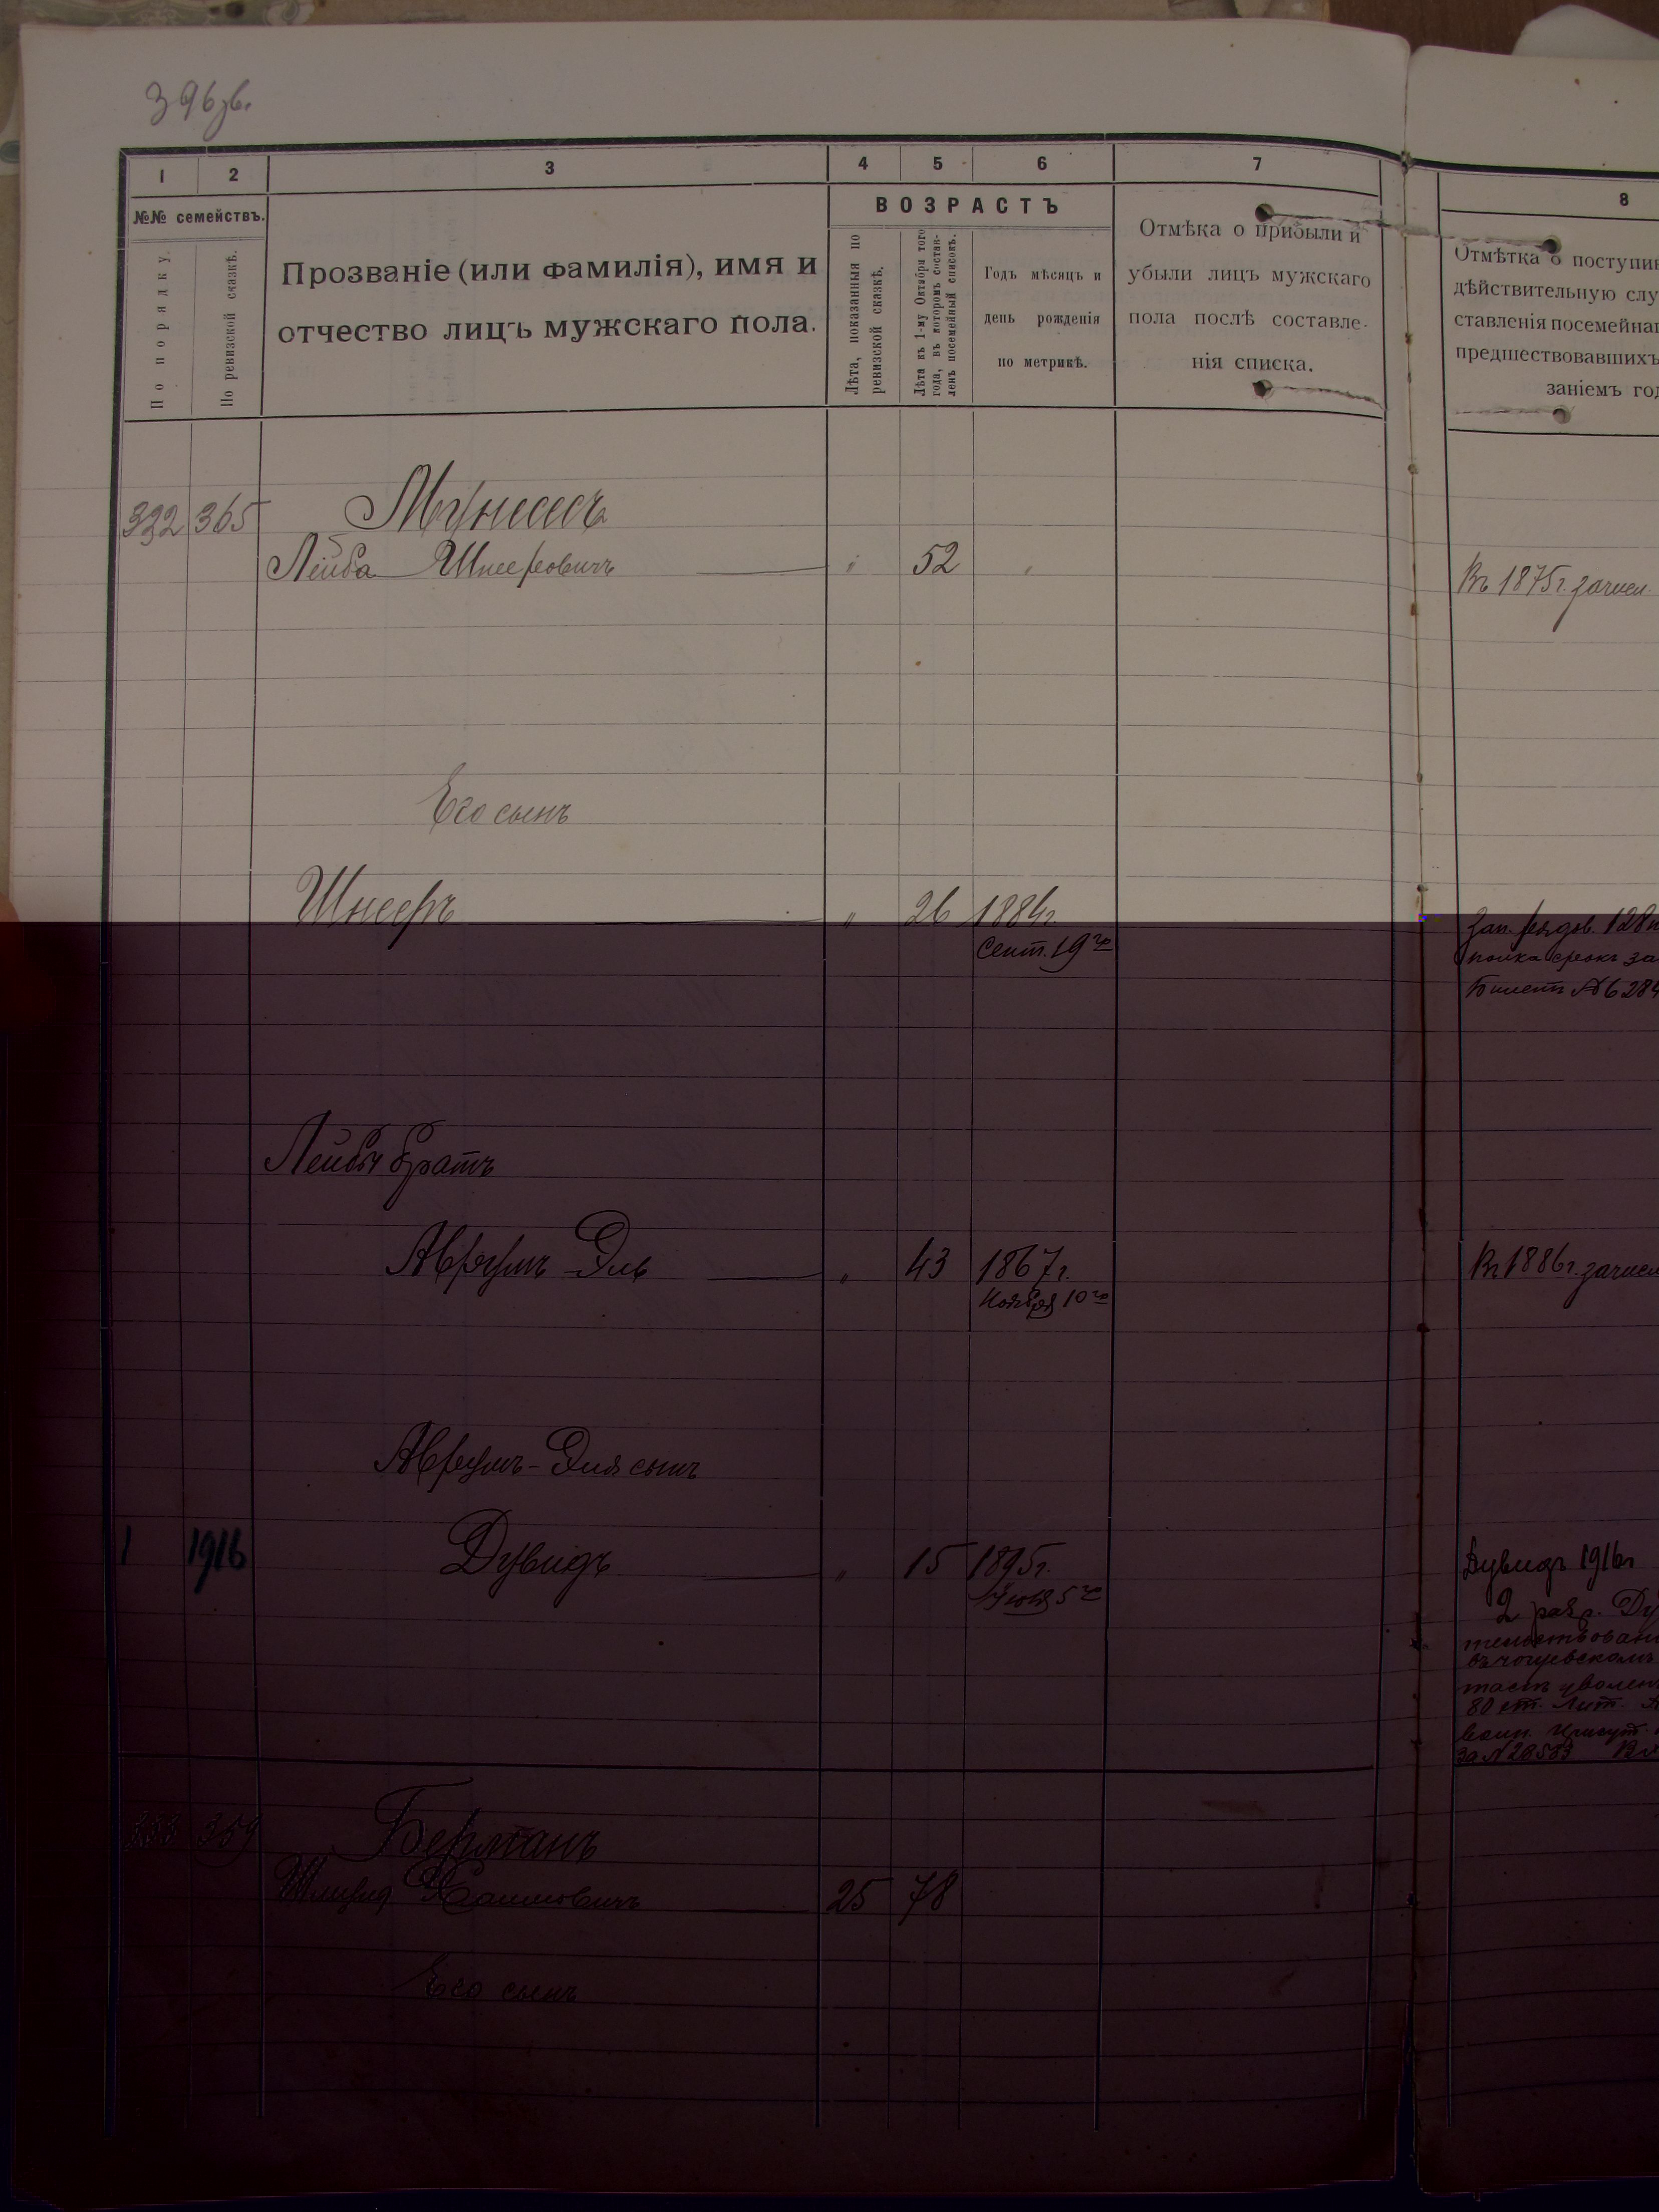 396об.
1 2 3 4 5 6 7 8
№№ семействъ.
По порядку.
По ревизской сказкѣ.
Прозваніе (или фамилія), имя и
отчество лицъ мужскаго пола.
ВОЗРАСТЪ
Лѣта, показанныя по
ревизской сказкѣ.
Лѣта къ 1-му Октября того
года, въ которомъ состав-
ленъ посемейный списокъ.
Годъ мѣсяцъ и
день рожденія
по метрикѣ.
Отмѣка о прибыли и
убыли лицъ мужскаго
пола послѣ составле-
нія списка.
Отмѣтка о поступив
дѣйствительную слу
ставленія посемейна
предшествовавшихъ
заніемъ год
332 365 Мунесъ
Лейба Шнееровичъ " 52 " Въ 1875г. зачисл.
Его сынъ
Шнееръ " 26 1884г.
Сент. 19го
Зап. рядов. 128
полка срокъ за
Билетъ № 6284
Лейбы братъ
Аврумъ-Эль " 43 1867г. Въ 1886г. зачисл
Ноября 10го
Аврумъ-Эля сынъ
1 1916 Дувидъ " 15 1895г.
5го
Дувидъ 1916г
2 разр. Ду
тельствован
въ чогуевскомъ
уволен
80 ст. Лит.
воин. Присут.
За №
333 369 Берманъ
Хаимовичъ 25 78
Его сынъ